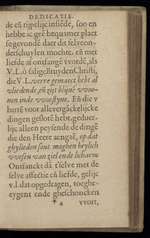 DEDICATIE.
eñ rijpelijc insiede, soo en
hebbe ic geē bequamer plact
gevonde daer dit selve on-
derschuylen mochte, eñ met
liefde al ontfangē vvorde, als
V.L. ô salige Bruyden Christi,
die V.L. verre gemaect hebt al
vliedende, eñ zijt blijvē vvoo-
nen inde vvoestijne. Eñ die v
hert vooр allevergāckelijcke
dingen geslotē hebt, geduer-
lijc alleen peysende de dingē
die den Heere aengaē, op dat
ghy lieden sout moghen heylich
wesen van ziel ende lichaem
Ontfanckt dā t'selve met de
selve affectie eñ liefde, gelijc
v.l. dat opgedragen, toeghe-
eygent ende gheschoncken
vvort,